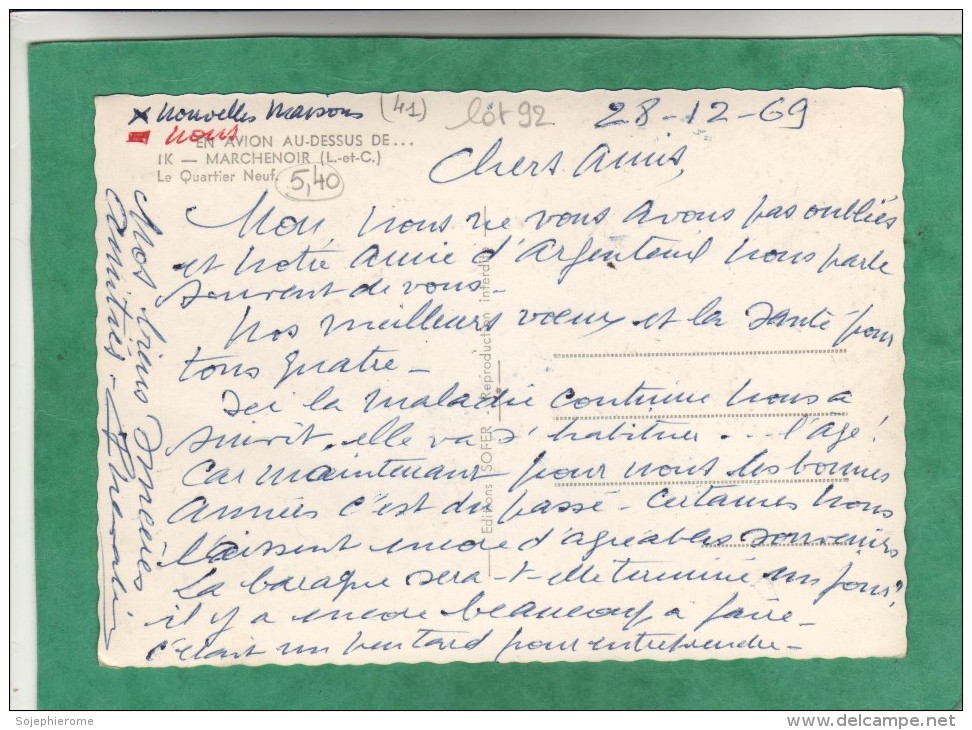 x Nouvelles Maisons (41)
lot 92
28-12-69
- Nous
EN AVION AU-DESSUS DE...
IK — MARCHENOIR (L.-et-C.)
Le Quartier Neuf.
5,40
Chers Amis,
Non nous ne vous avons pas oubliés
et notre amie d'Argenteuil nous parle
souvent de vous -
Nos meilleurs vœux et la Santé pour
tous quatre -
Ici la maladie continue nous a
suivit, elle va s'habituer... l'age!
Car maintenant pour nous les bonnes
Années c'est du passé - Certaines nous
laissent encore d'agréables souvenirs
La baraque sera-t-elle terminé un jour?
il y a encore beaucoup a faire -
c'était un peu tard pour entreprendre -
Nos biens sincères
Amitiés -
Editions SOFER - Reproduction interdite
Sojephierome
www.delcampe.net